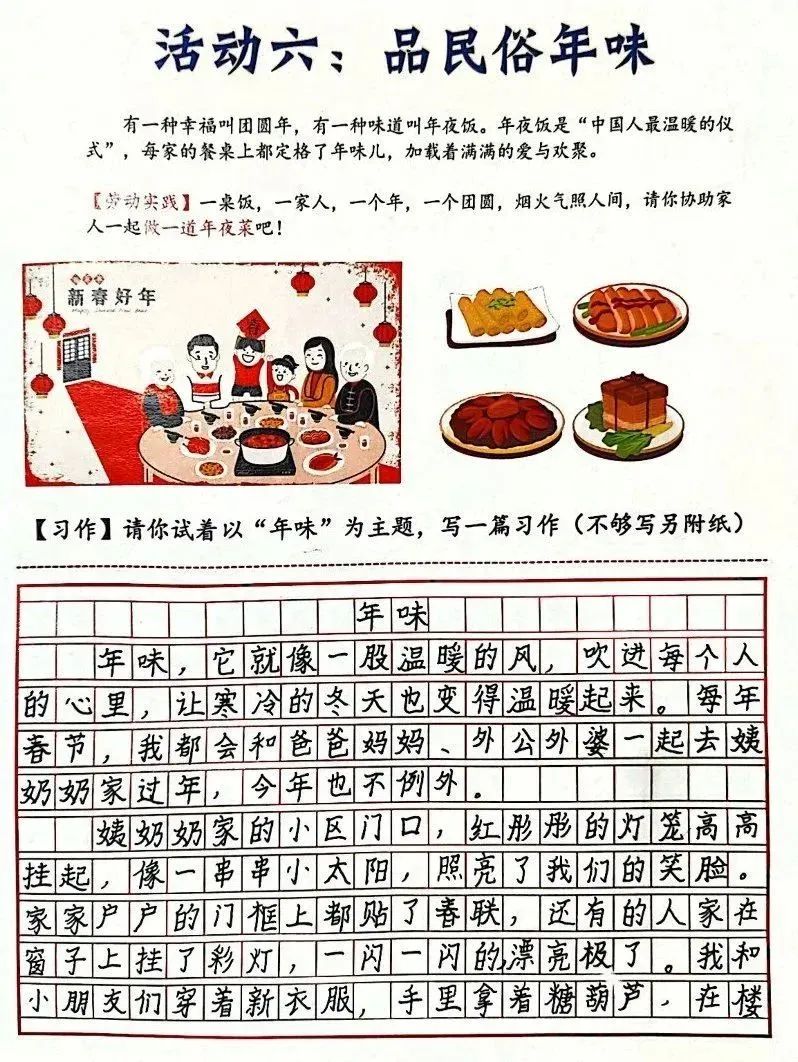 活动六：品民俗年味
有一种幸福叫团圆年，有一种味道叫年夜饭。年夜饭是“中国人最温暖的仪
式”，每家的餐桌上都定格了年味儿，加载着满满的爱与欢聚。
【劳动实践】一桌饭，一家人，一个年，一个团圆，烟火气照人间，请你协助家
人一起做一道年夜菜吧！
新春好年
Happy Chinese New Year
春
【习作】请你试着以“年味”为主题，写一篇习作（不够写另附纸）
年味
年味，它就像一股温暖的风，吹进每个人
的心里，让寒冷的冬天也变得温暖起来。每年
春节，我都会和爸爸妈妈、外公外婆一起去姨
奶奶家过年，今年也不例外。
姨奶奶家的小区门口，红彤彤的灯笼高高
挂起，像一串串小太阳，照亮了我们的笑脸。
家家户户的门框上都贴了春联，还有的人家在
窗子上挂了彩灯，一闪一闪的，漂亮极了。我和
小朋友们穿着新衣服，手里拿着糖葫芦，在楼